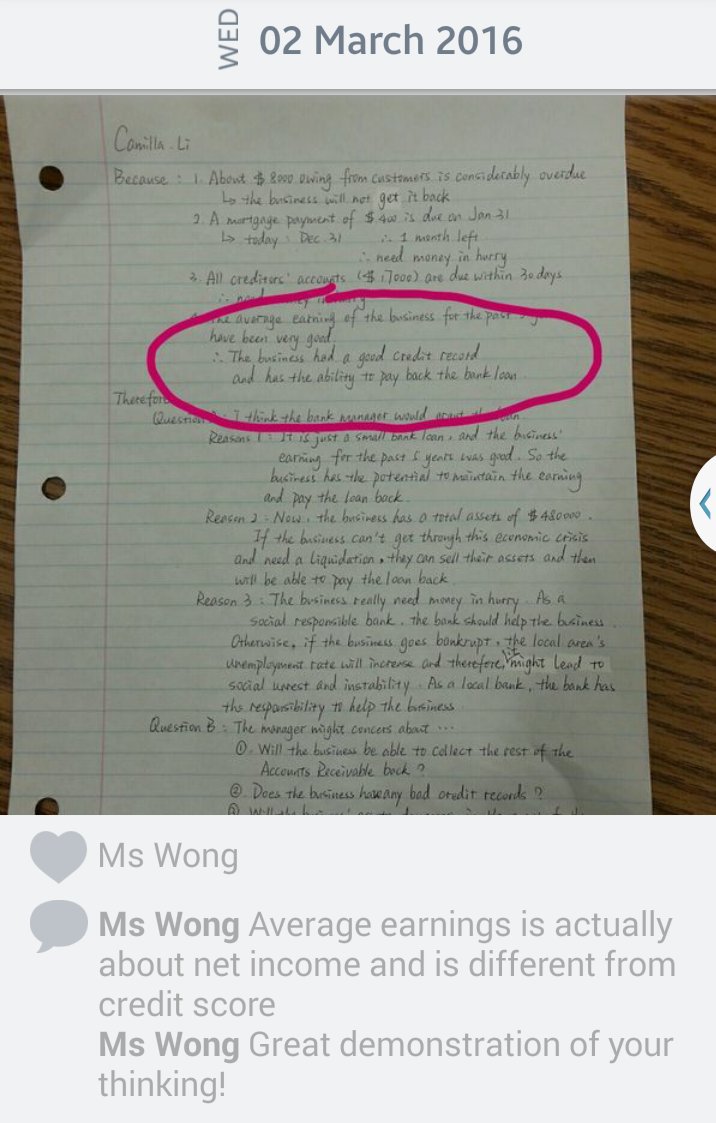 WED
02 March 2016
Camilla. Li
Because : 1. About $ 8000 owing from customers is considerably overdue
↳ the business will not get it back
2. A mortgage payment of $ 400 is due on Jan 31
↳ today : Dec 31 ∴ 1 month left
∴ need money in hurry
3. All creditors' accounts ($ 17000) are due within 30 days
∴ need money in hurry
The average earning of the business for the past 5
have been very good
∴ The business had a good credit record
and has the ability to pay back the bank loan
Therefore
Question A : I think the bank manager would grant the loan
Reasons 1 : It is just a small bank loan, and the business'
earning for the past 5 years was good. So the
business has the potential to maintain the earning
and pay the loan back.
Reason 2 : Now, the business has a total assets of $ 480000.
If the business can't get through this economic crisis
and need a liquidation, they can sell their assets and then
will be able to pay the loan back.
Reason 3 : The business really need money in hurry. As a
social responsible bank, the bank should help the business.
Otherwise, if the business goes bankrupt, the local area's
unemployment rate will increase and therefore, it might lead to
social unrest and instability. As a local bank, the bank has
the responsibility to help the business
Question B : The manager might concers about ...
①. Will the business be able to collect the rest of the
Accounts Receivable back ?
②. Does the business have any bad credit records ?
③ Will the
Ms Wong
Ms Wong Average earnings is actually
about net income and is different from
credit score
Ms Wong Great demonstration of your
thinking!